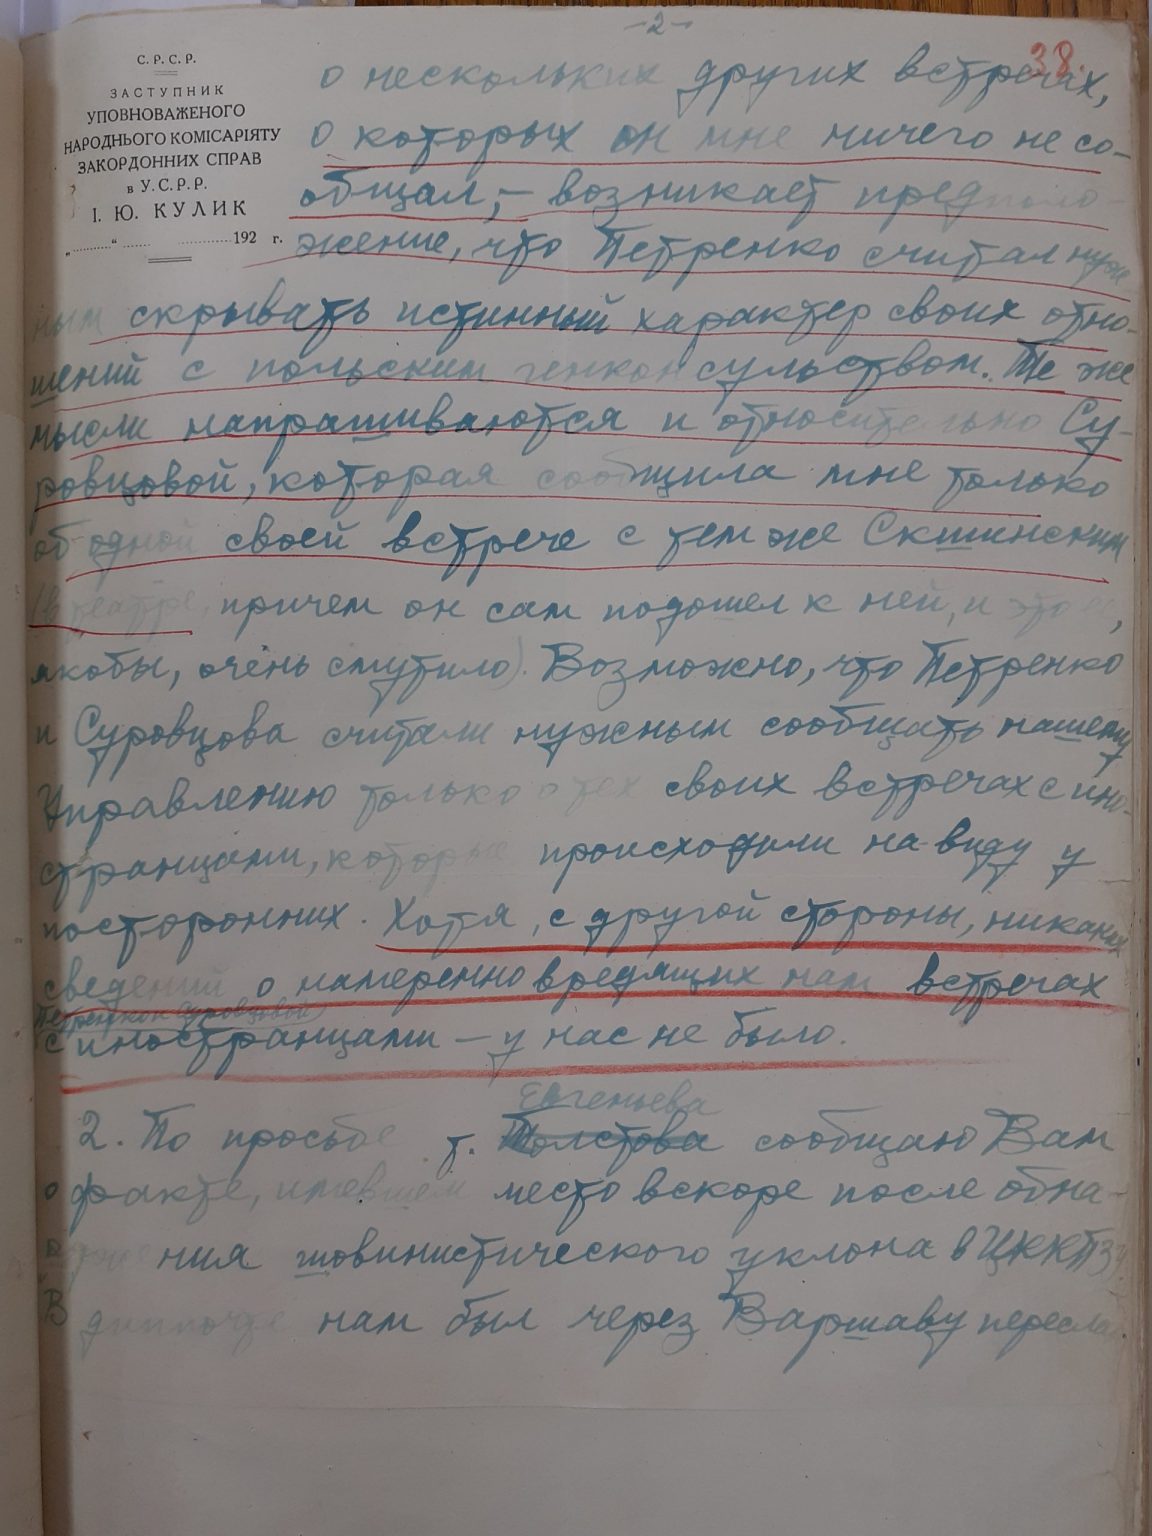 -2-
38.
С. Р. С. Р.
ЗАСТУПНИК
УПОВНОВАЖЕНОГО
НАРОДНЬОГО КОМІСАРІЯТУ
ЗАКОРДОННИХ СПРАВ
в У. С. Р. Р.
І. Ю. КУЛИК
„............“ ...... ............. 192 г.
о нескольких других встречах,
о которых он мне ничего не со-
общал, – возникает предполо-
жение, что Петренко считал нуж-
ным скрывать истинный характер своих отно-
шений с польским генконсульством. Те же
мысли напрашиваются и относительно Су-
ровцовой, которая сообщила мне только
об одной своей встрече с тем же Скшинским
(в театре, причем он сам подошел к ней, и это ее,
якобы, очень смутило). Возможно, что Петренко
и Суровцова считали нужным сообщать нашему
Управлению только о тех своих встречах с ино-
странцами, которые происходили на виду у
посторонних. Хотя, с другой стороны, никаких
сведений о намеренно вредящих нам встречах
Петренко и Суровцовой
с иностранцами – у нас не было.
Евгеньева
2. По просьбе т. Толстова сообщаю Вам
о факте, имевшем место вскоре после обна-
ружения шовинистического уклона в ЦККПЗУ.
В диппочте нам был через Варшаву переслан